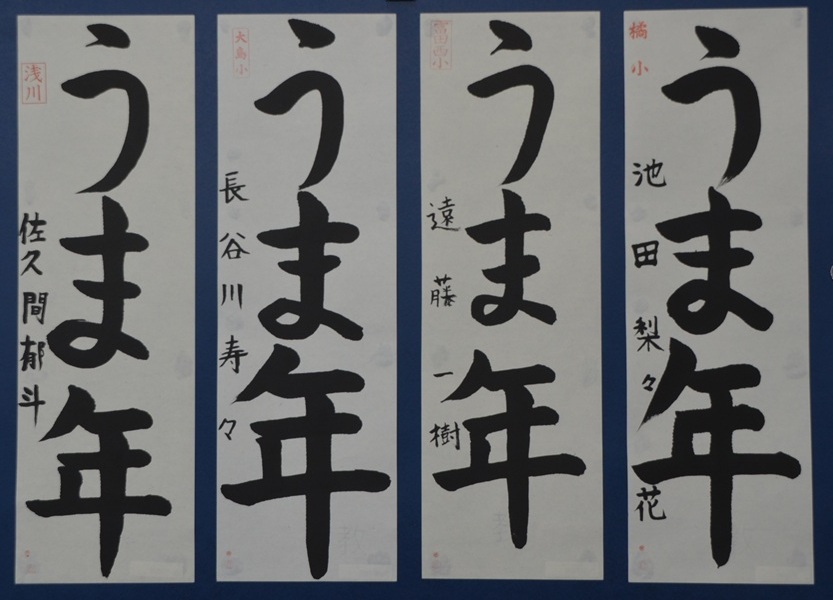 橘小
うま年
池田梨々花
富田西小
うま年
遠藤一樹
大島小
うま年
長谷川寿々
浅川
うま年
佐久間郁斗